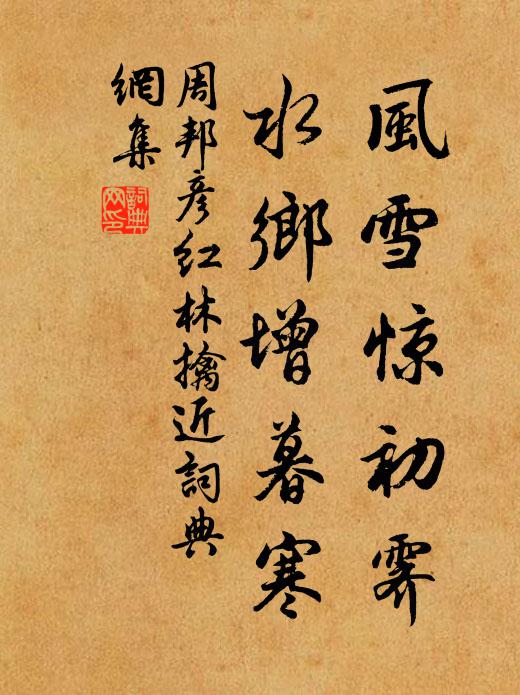 風雪惊初霁
水鄉增暮寒
周邦彦红林擒近詞典
網集
詞典
网印